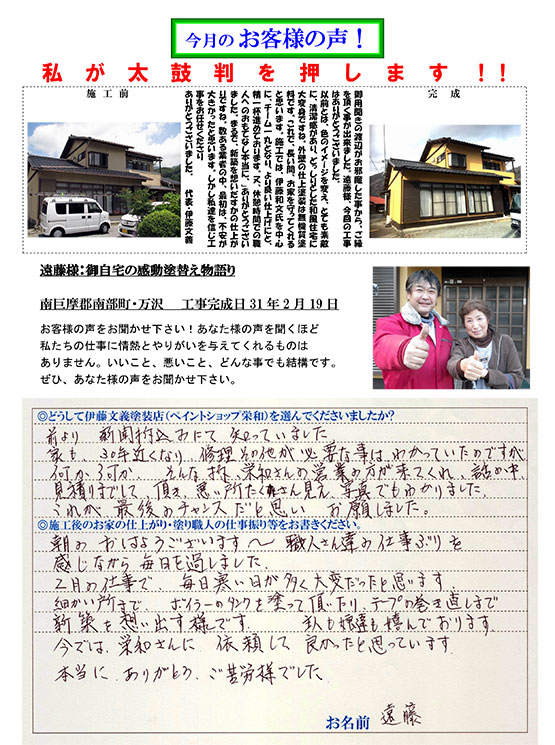 今月の お客様の声！
私が太鼓判を押します!!
施工前
完成
御用聞きの渡辺がお邪魔した事から、ご縁
を頂く事が出来ました。遠藤様、今回の工事
はありがとうございました。
以前とは、色のイメージを変え、とても素敵
に、清潔感があり、どっしりとした和風住宅に
大変身ですね。外壁の仕上塗装は無機質塗
料です。これで、長い間、お家を守ってくれる
と思います。施工では、伊藤和文氏を中心
に、チーム一丸となり、より良い仕上げにと、
精一杯進めております。又、休憩時間での職
人へのおもてなし本当に、ありがとうござい
ました。まるで、新築を想いだすかの仕上が
りですね。数ある業者の中、最初は、不安が
大きかったと思います。しかし私達を信じ工
事をお任せくださり
ありがとうございました。 代表・伊藤文義
遠藤様：御自宅の感動塗替え物語り
南巨摩郡南部町・万沢 工事完成日31年2月19日
お客様の声をお聞かせ下さい！あなた様の声を聞くほど
私たちの仕事に情熱とやりがいを与えてくれるものは
ありません。いいこと、悪いこと、どんな事でも結構です。
ぜひ、あなた様の声をお聞かせ下さい。
◎どうして伊藤文義塗装店（ペイントショップ栄和）を選んでくださいましたか?
前より 新聞折込みにて 知っていました
家も、30年近くなり、修理その他が必要な事は、わかっていたのですが
何か、何か、 そんな折、栄和さんの営業の方が来てくれ、話の中
見積りまでして 頂き、悪い所たくさん見え、写真でもわかりました。
これが 最後のチャンスだと思い お願しました。
◎施工後のお家の仕上がり・塗り職人の仕事振り等をお書きください。
朝の おはようございます〜 職人さん達の仕事ぶりを
感じながら 毎日を過しました.
2月の仕事で、毎日寒い日が多く大変だったと思います.
細かい所まで、ボイラーのタンクを塗って頂いたり、テープの巻き直しまで
新築を想い出す様です. 私も娘達も嬉んでおります.
今では、栄和さんに 依頼して 良かったと思っています.
本当に、ありがとう、ご苦労様でした.
お名前 遠藤